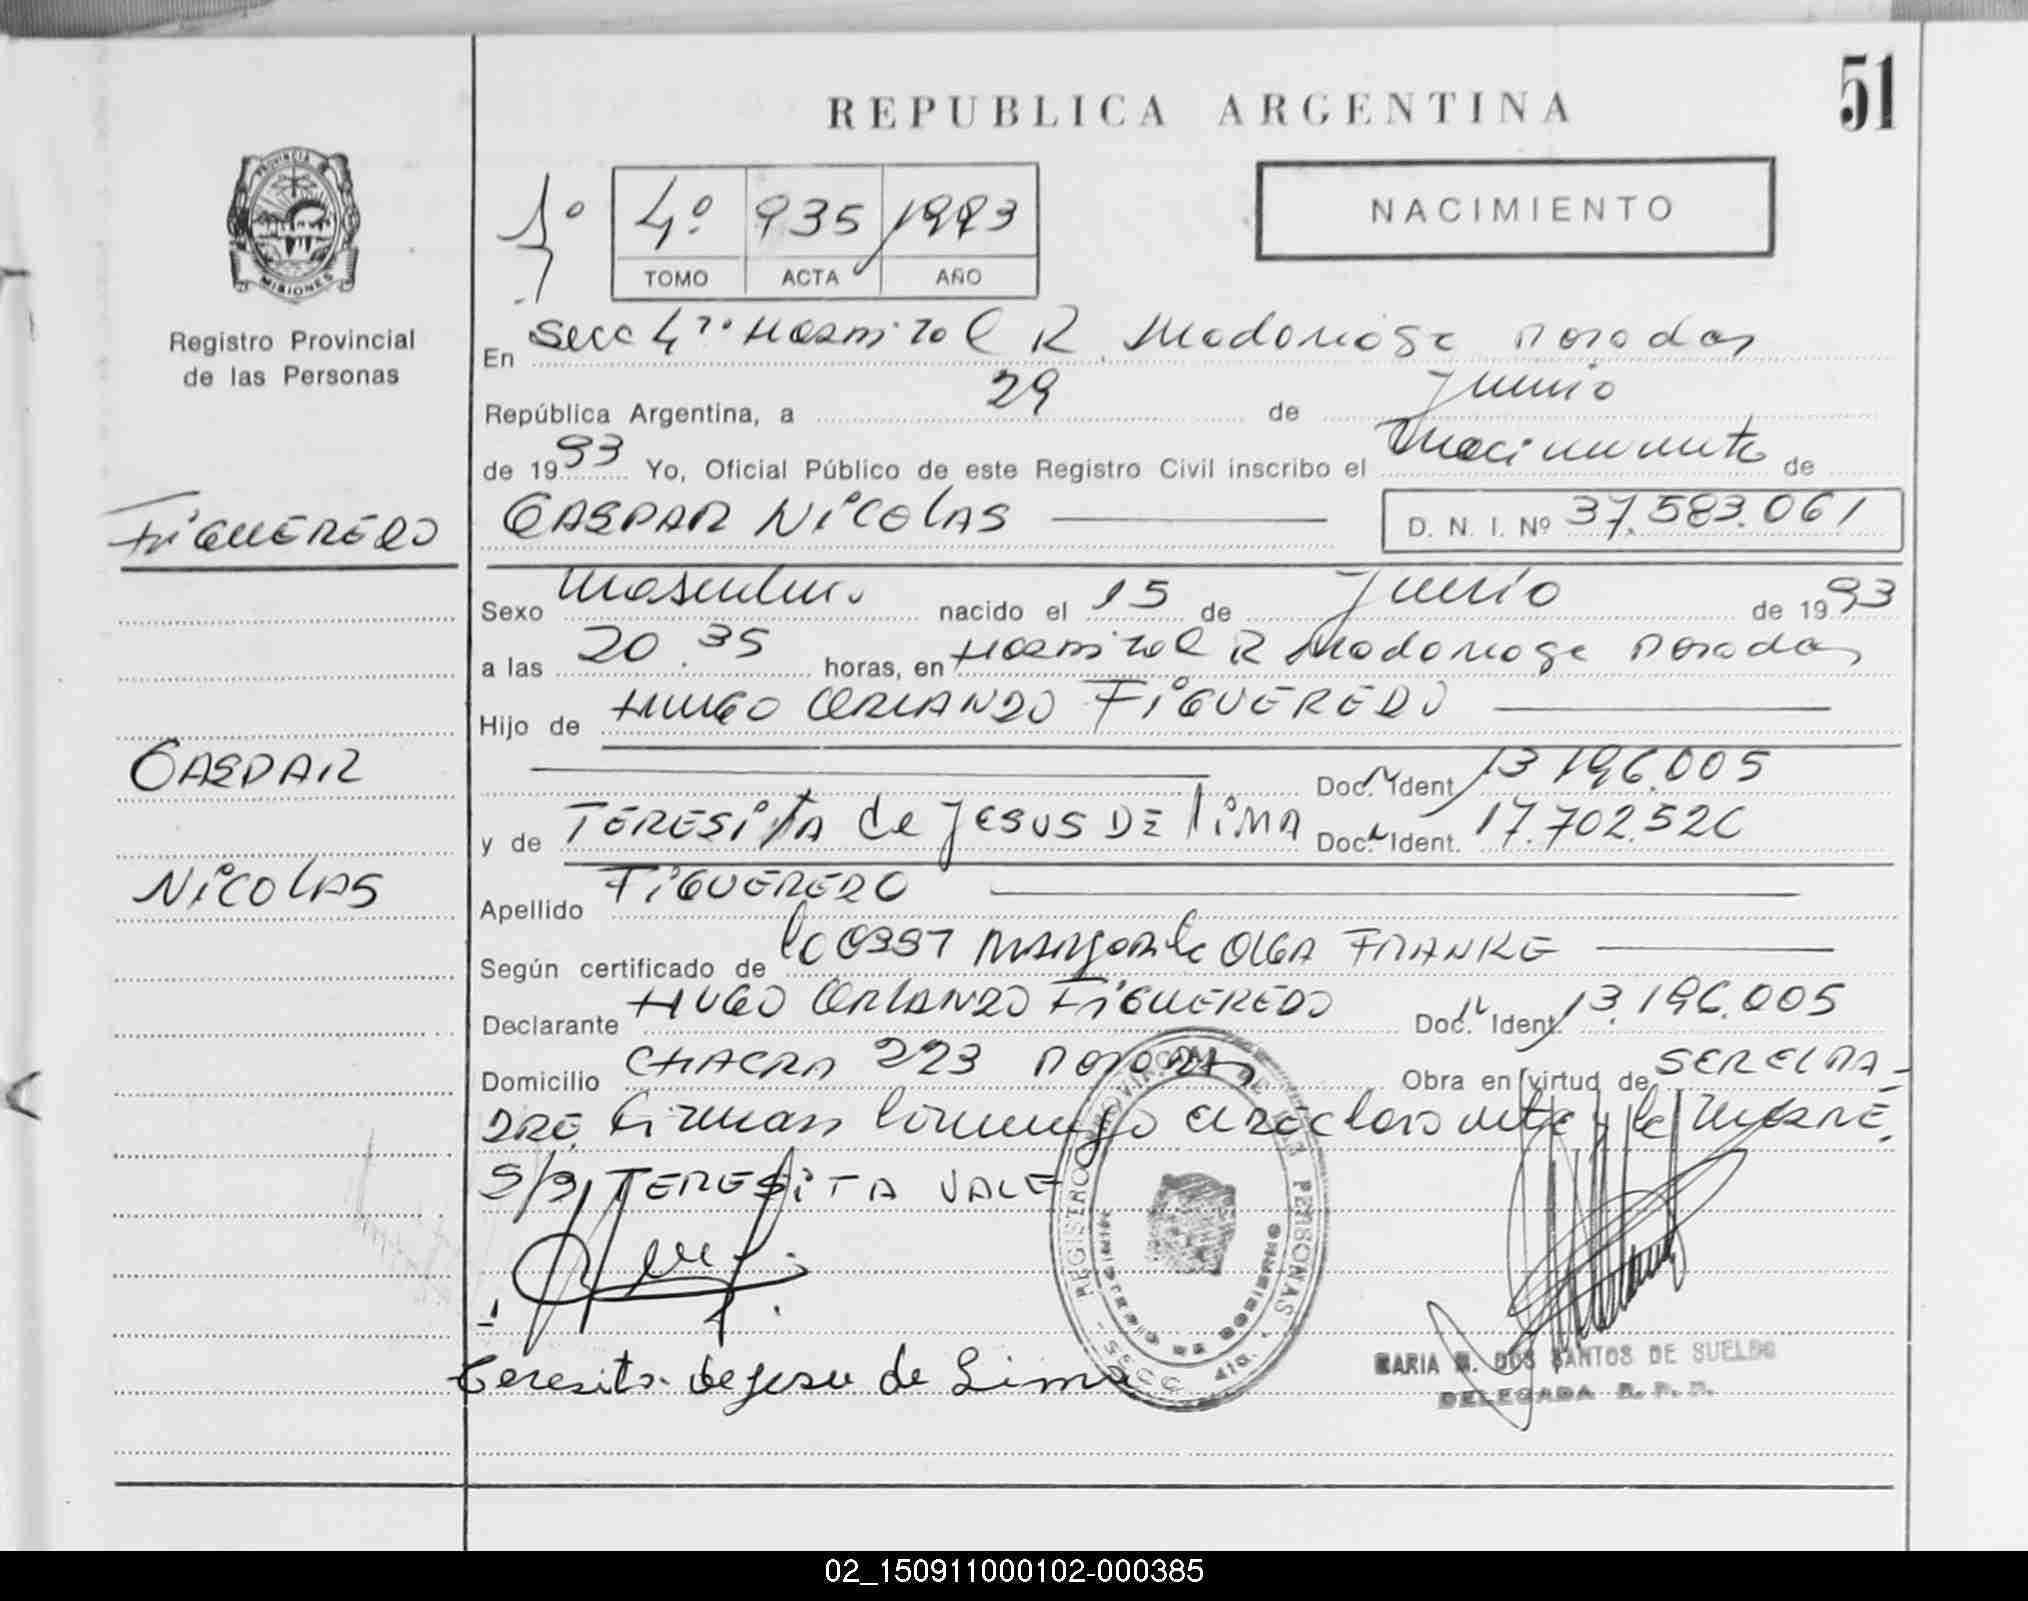 51
REPUBLICA ARGENTINA
PROVINCIA DE
MISIONES
Registro Provincial
de las Personas
1º 4º 935 1993
TOMO ACTA AÑO
NACIMIENTO
En Secc 4ta Hospital R. Madariaga Posadas
República Argentina, a 29 de Junio
de 1993 Yo, Oficial Público de este Registro Civil inscribo el Nacimiento de
FIGUEREDO
GASPAR NICOLAS D. N. I. Nº 37.583.061
Sexo Masculino nacido el 15 de Junio de 1993
a las 20.35 horas, en Hospital R Madariaga Posadas
Hijo de HUGO ORLANDO FIGUEREDO
GASPAR
Doc. Ident. 13.196.005
y de TERESITA de JESUS DE LIMA Doc. Ident. 17.702.526
NICOLAS
Apellido FIGUEREDO
Según certificado de OLGA FRANKE
Declarante HUGO ORLANDO FIGUEREDO Doc. Ident. 13.196.005
Domicilio CHACRA 223 Posadas Obra en virtud de SER EL PA-
DRE. Firman conmigo el declarante y la MADRE.
S/B, TERESITA VALE
REGISTRO PROVINCIAL DE LAS PERSONAS
Teresita de Jesu de Lima
DOS SANTOS DE SUELDO
DELEGADA R. P. P.
02_150911000102-000385